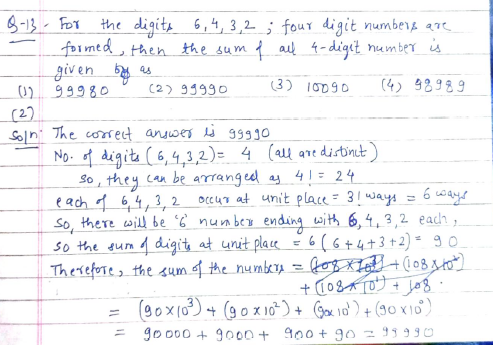 Q-13. For the digits 6, 4, 3, 2 ; four digit numbers are
formed, then the sum of all 4-digit number is
given by as
(1) 99980 (2) 99990 (3) 10090 (4) 98989
(2)
Soln: The correct answer is 99990
No. of digits (6,4,3,2) = 4 (all are distinct)
So, they can be arranged as 4! = 24
each of 6, 4, 3, 2 occur at unit place = 3! ways = 6 ways
So, there will be '6' number ending with 6, 4, 3, 2 each,
so the sum of digits at unit place = 6 ( 6 + 4 + 3 + 2 ) = 90
Therefore, the sum of the numbers = (108 × 10³) + (108 × 10²)
+ (108 × 10¹) + 108.
= (90 × 10³) + (90 × 10²) + (90 × 10¹) + (90 × 10⁰)
= 90000 + 9000 + 900 + 90 = 99990